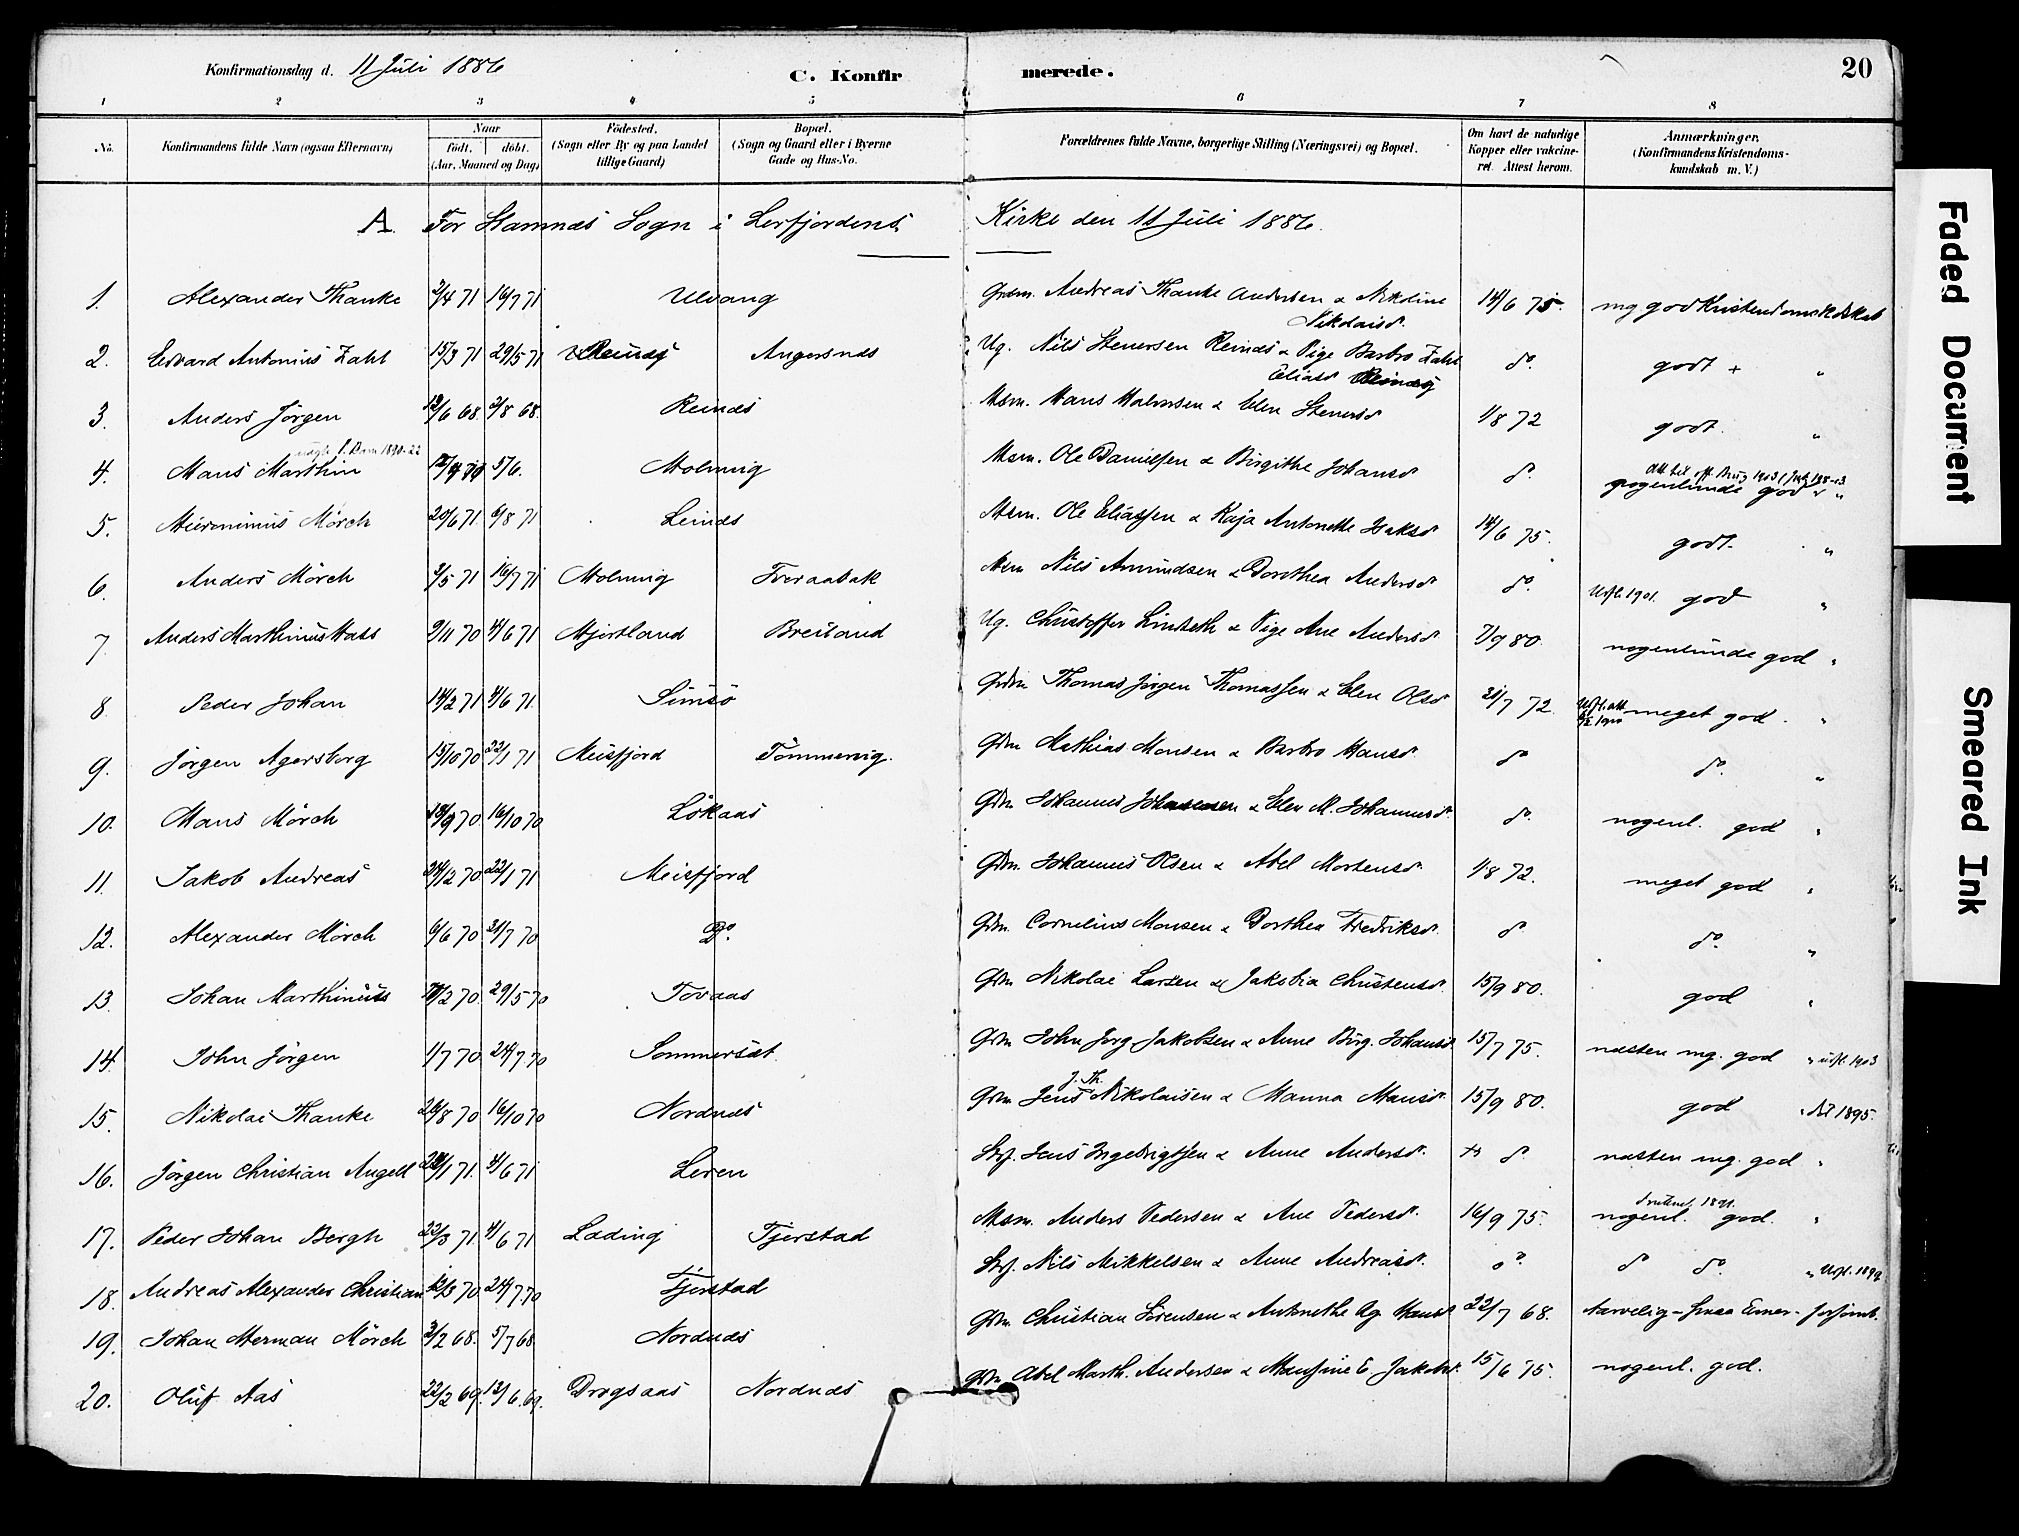 Konfirmationsdag d. 11 Juli 1886 C. Konfirmerede. 20
1 2 3 4 5 6 7 8
No. Konfirmandens fulde Navn (ogsaa Efternavn) Naar født. døbt. (Aar, Maaned og Dag) Fødested. (Sogn eller By og paa Landet tillige Gaard) Bopæl. (Sogn og Gaard eller i Byerne Gade og Hus-No. Forældrenes fulde Navne, borgerlige Stilling (Næringsvei) og Bopæl. Om havt de naturlige Kopper eller vakcineret. Attest herom. Anmærkninger. (Konfirmandens Kristendomskundskab m. V.)
A. For Stamnes Sogn i Lerfjordens Kirke den 11 Juli 1886.
1. Alexander Thanke 2/4 71 16/7 71 Ulvang Grdm. Andreas Thanke Andersen & Nikoline Nikolaisd. 14/6 75. mg god Kristendomskdskab
2. Edvard Antonius Zahl 15/3 71 29/5 71 Reinesj Angersnes Ug. Nils Stenersen Reines & Pige Barbro Zahl Eliasd do. godt + "
3. Anders Jörgen 12/6 68. 2/8 68. Reines Msm. Hans Halvorsen & Elen Stenersd 1/8 72 godt "
4. Hans Marthin 5/6. Holmvig Msm. Ole Danielsen & Birgithe Johansd do. nogenlunde god "
5. Hieronimus Mörch 20/6 71. 6/8 71 Leines Msm. Ole Eliassen & Kaja Antonette Isaksd 14/6 75. godt "
6. Anders Mörch 3/5 71 16/7 71 Holmvig Tveraabak Msm Nils Amundsen & Dorothea Andersd do. Udfl. 1901. god "
7. Anders Marthinus Hass 9/11 70 4/6 71 Hjertland Breiland Ug. Christoffer Lindseth & Pige Ane Andersd 7/9 80. nogenlunde god "
8. Peder Johan 14/2 71 4/6 71. Simsö Grdm Thomas Jörgen Thomassen & Elen Olsd 21/7 72. Udfl. att 1910 meget god. "
9. Jörgen Agersborg 15/10 70 22/1 71 Meisfjord Tömmervig. Grdm Mathias Monsen & Barbro Hansd. do do. "
10. Hans Mörch 18/9 70 16/10 70 Lökaas Grdm Johannes Johannesen & Elen M. Johannesd. do. nogenl. god "
11. Jakob Andreas 24/12 70 22/1 71 Meisfjord Grdm. Johannes Olsen & Abel Mortensd. 1/8 72. meget god "
12. Alexander Mörch 6/6 70 31/7 70 Do. Grdm. Cornelius Monsen & Dorthea Fredriksd. do do. "
13. Johan Marthinus 29/5 70 Tovaas Grdm Nikolai Larsen & Jakobia Christensd. 15/9 80. god "
14. John Jörgen 1/7 70 24/7 70 Sommerset. Grdm John Jörg Jakobsen & Anne Birg. Johansd 15/7 75. næsten mg. god " udfl. 1903
15. Nikolai Thanke 28/8 70 16/10 70 Nordnes Grdm J. Th. Jens Nikolaisen & Hanna Hansd. 15/9 80. god " Att 1895.
16. Jörgen Christian Angell 28/1 71. 4/6 71 Leren Strf. Jens Ingebrigtsen & Anne Andersd. do. næsten mg. god "
17. Peder Johan Bergh 22/3 71. 4/6 71 Lading Fjerstad Msm. Anders Pedersen & Ane Pedersd. 16/9 75. 1891. nogenl. god. "
18. Andreas Alexander Christian 24/7 70 Fjerstad Strf. Nils Mikkelsen & Anne Andreasd. do. do do. " Udfl. 1899
19. Johan Herman Mörch 3/2 68. 5/7 68 Nordnes Grdm Christian Sörensen & Antonethe Ag. Hansd 22/7 68. tarvelig - smaa Evner - forsömt.
20. Oluf Aas 22/2 69. 12/6. 69. Drogsaas Nordnes Grdm Abel Marth. Andersen & Hansine E. Jakobsd. 15/6 75. nogenl. god.
Faded Document
Smeared Ink